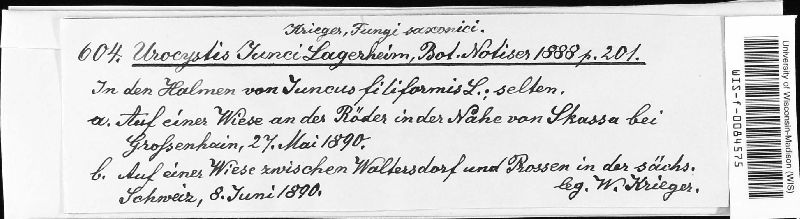 Krieger, Fungi saxonici.
604. Urocystis Junci Lagerheim, Bot. Notiser 1888 p. 201.
In den Halmen von Juncus filiformis L.; selten.
a. Auf einer Wiese an der Röder in der Nähe von Skassa bei
Großenhain, 27. Mai 1890.
b. Auf einer Wiese zwischen Waltersdorf und Prossen in der sächs.
Schweiz, 8. Juni 1890.
leg. W. Krieger.
WIS-f-0084575
University of Wisconsin-Madison (WIS)